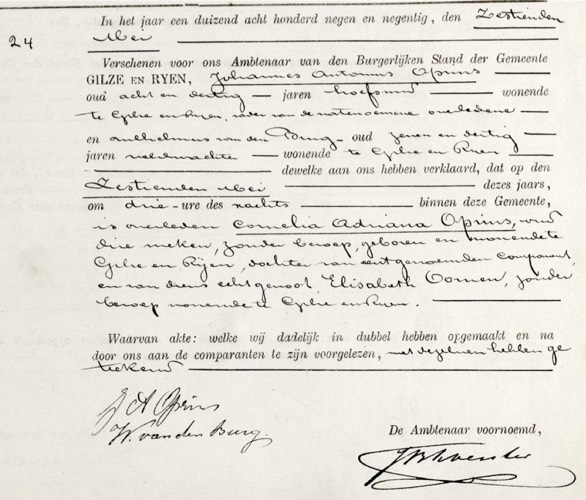 24
In het jaar een duizend acht honderd negen en negentig, den Zestienden
Mei
Verschenen voor ons Ambtenaar van den Burgerlijken Stand der Gemeente
GILZE EN RYEN, Johannes Antonius Oprins
oud acht en dertig jaren hoefsmid wonende
te Gilze en Rijen, vader van de natenoemene overledene
en Wilhelmus van den Burg oud zeven en dertig
jaren veldwachter wonende te Gilze en Rijen
dewelke aan ons hebben verklaard, dat op den
Zestienden Mei dezes jaars,
om drie ure des nachts binnen deze Gemeente,
is overleden Cornelia Adriana Oprins, oud
drie weken, zonder beroep, geboren en wonende te
Gilze en Rijen, dochter van eerstgenoemden comparant,
en van diens echtgenoot, Elisabeth Oomen, zonder
beroep wonende te Gilze en Rijen.
Waarvan akte: welke wij dadelijk in dubbel hebben opgemaakt en na
door ons aan de comparanten te zijn voorgelezen, met dezelven hebben ge
teekend
J A Oprins
W. van den Burg.
De Ambtenaar voornoemd,